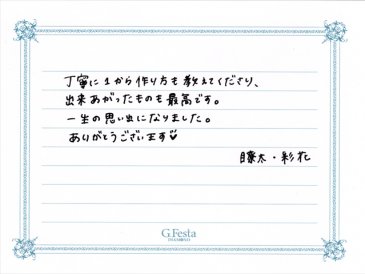 丁寧に1から作り方も教えてくださり、
出来あがったものも最高です。
一生の思い出になりました。
ありがとうございます♡
瞭太・彩花
G.Festa
DIAMOND